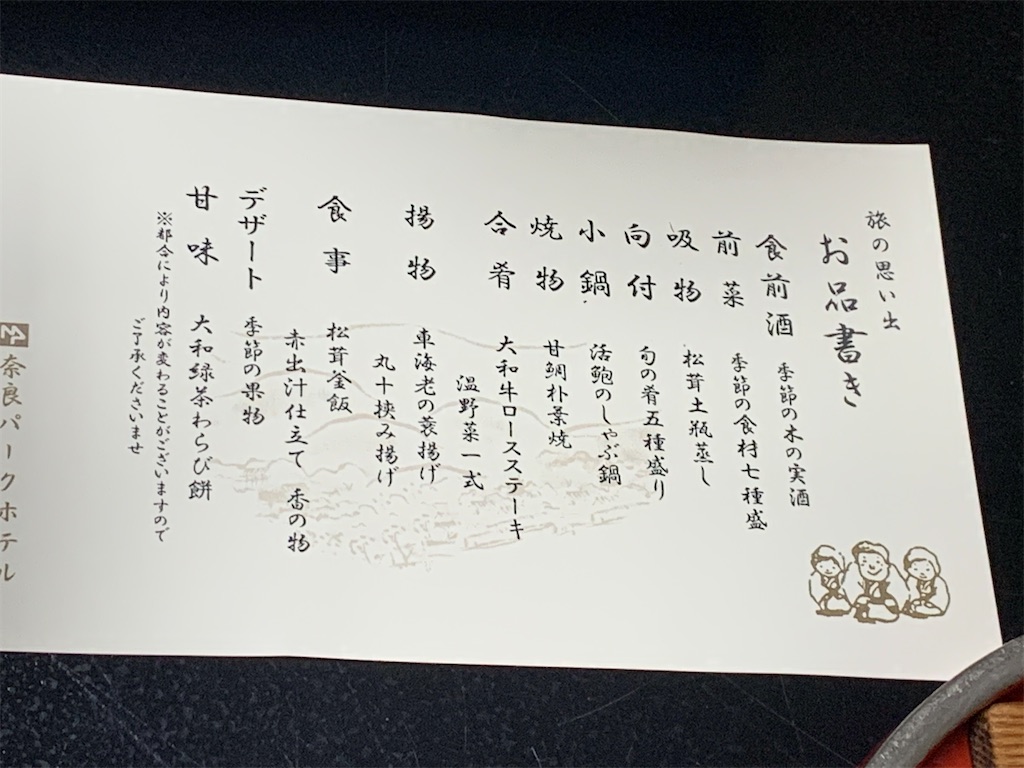 旅の思い出
お品書き
食前酒 季節の木の実酒
前菜 季節の食材七種盛
吸物 松茸土瓶蒸し
向付 旬の肴五種盛り
小鍋 活鮑のしゃぶ鍋
焼物 甘鯛朴葉焼
合肴 大和牛ロースステーキ
温野菜一式
揚物 車海老の蓑揚げ
丸十挟み揚げ
食事 松茸釜飯
赤出汁仕立て 香の物
デザート 季節の果物
甘味 大和緑茶わらび餅
※都合により内容が変わることがございますので
ご了承くださいませ
奈良パークホテル